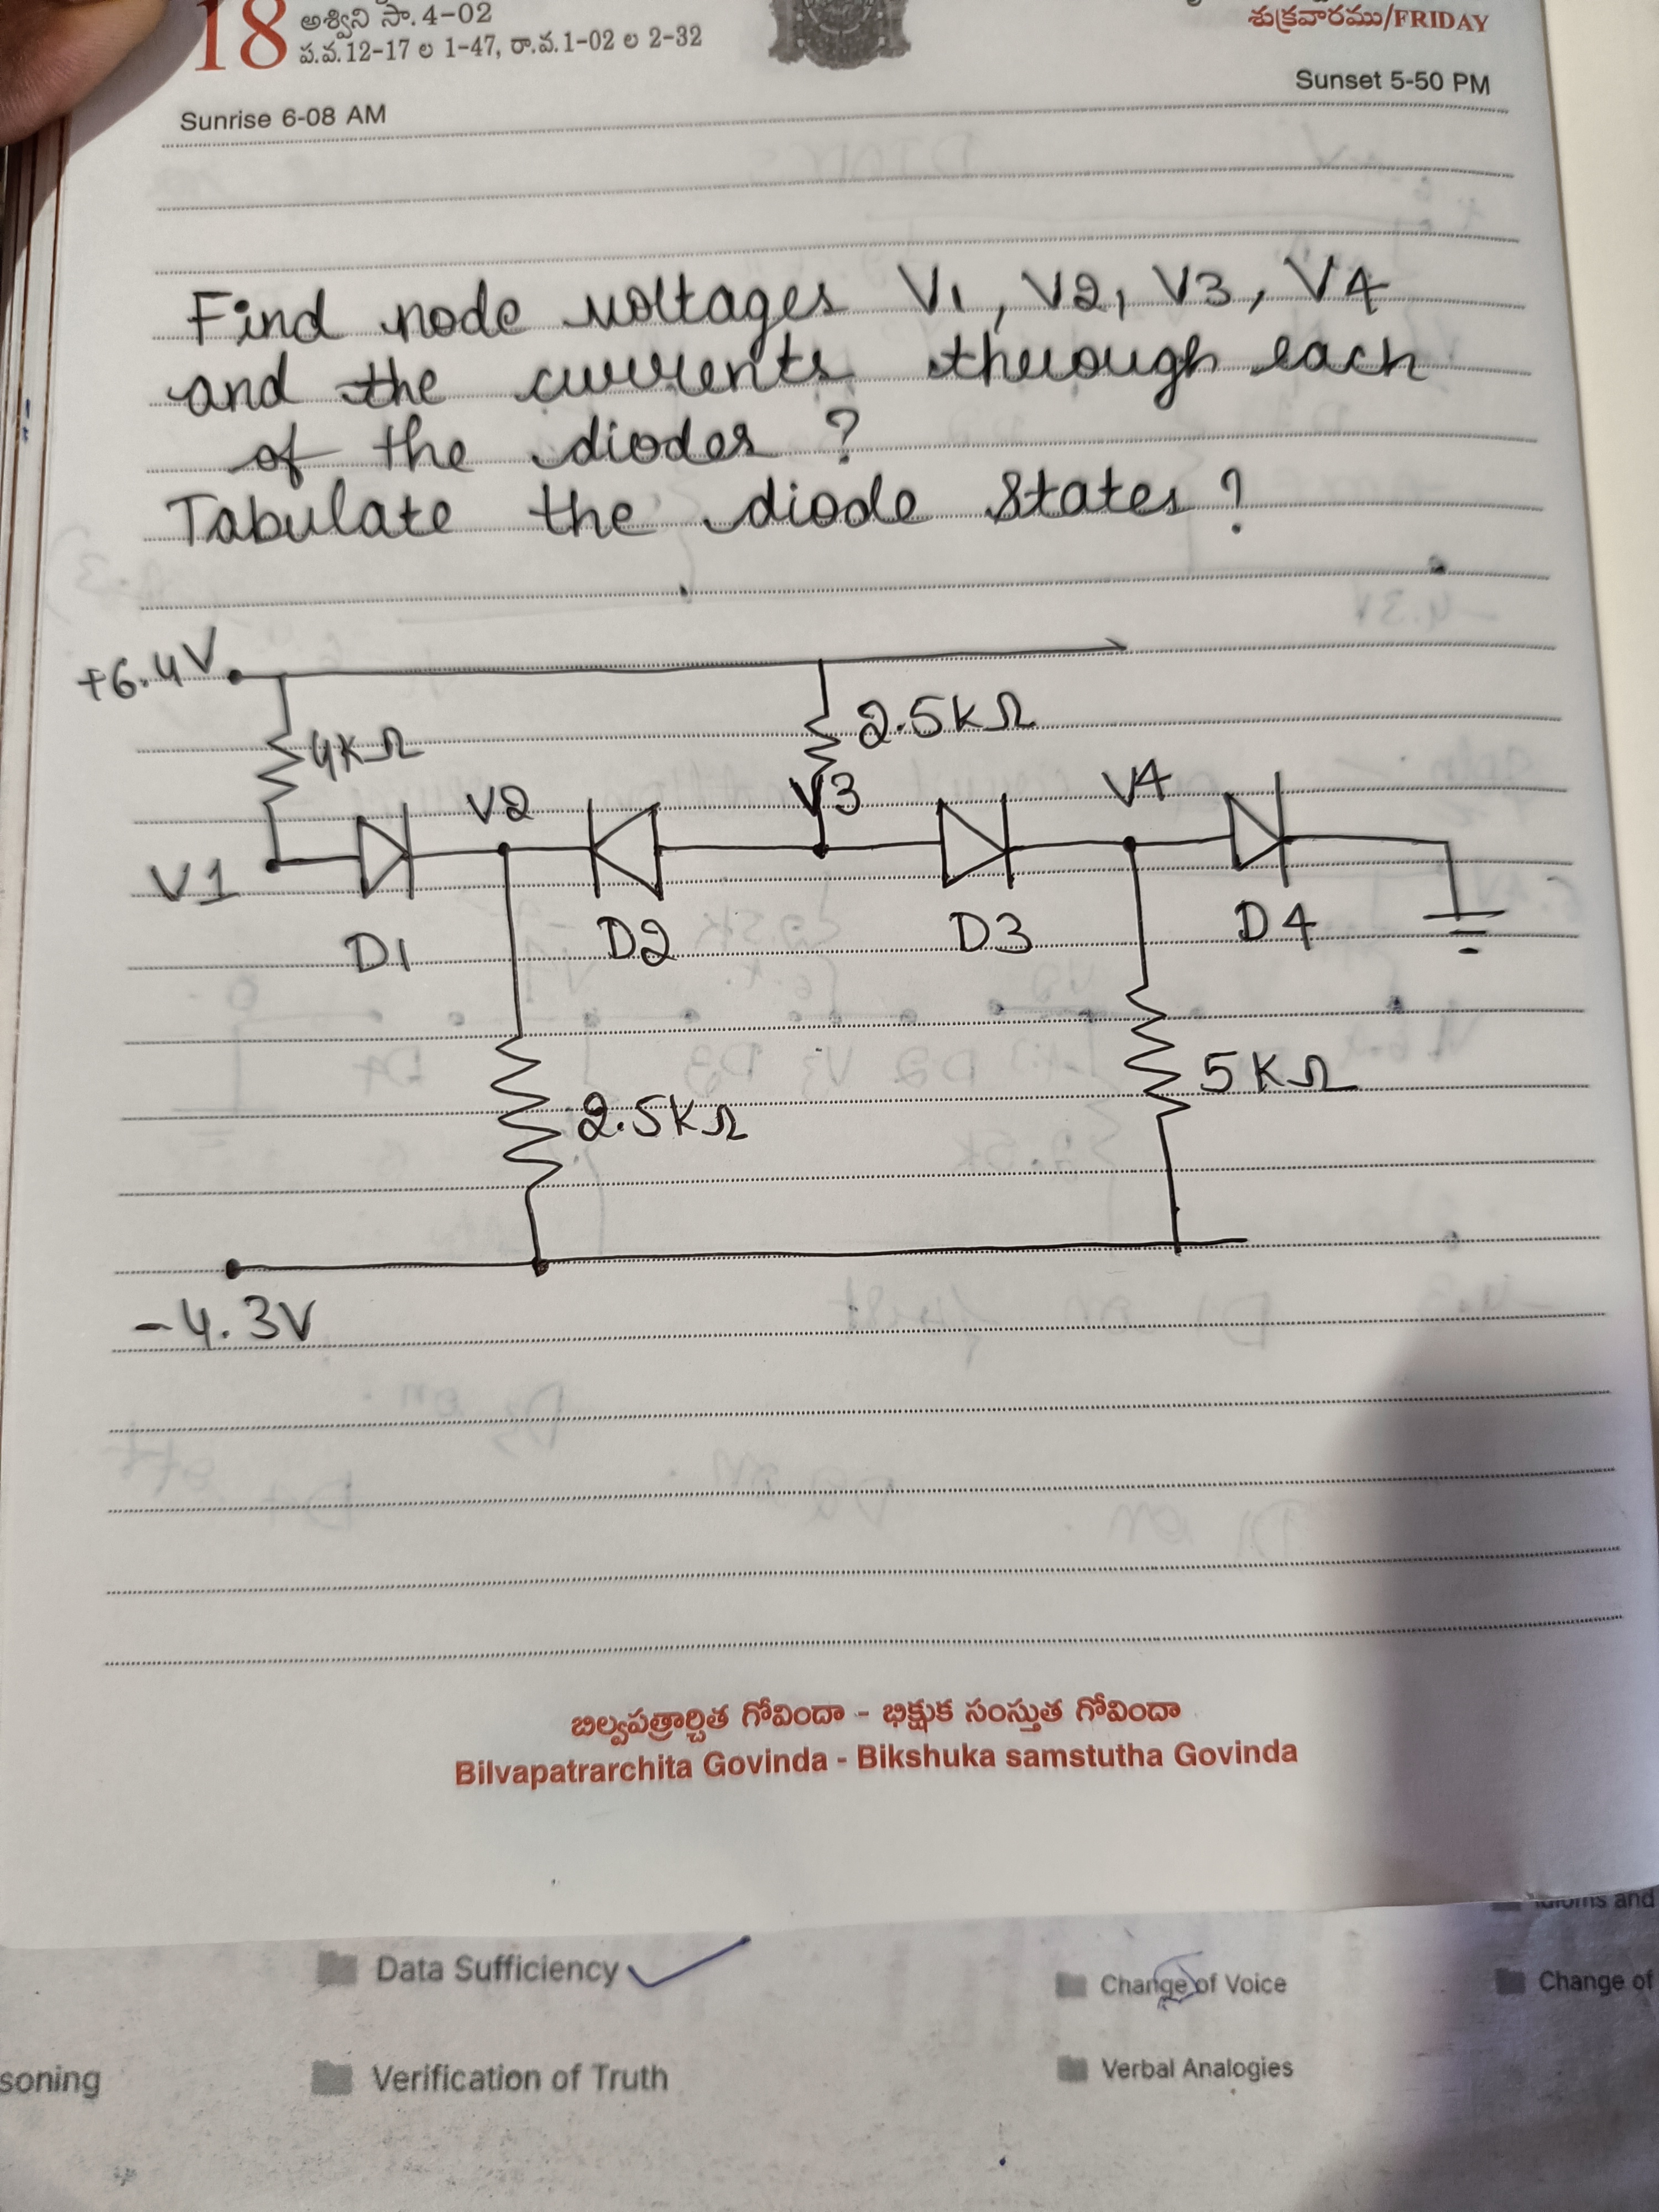 18 అశ్విని సా.4-02
ప.వ.12-17 ల 1-47, రా.వ.1-02 ల 2-32
శుక్రవారము/FRIDAY
Sunrise 6-08 AM
Sunset 5-50 PM
Find node voltages V1, V2, V3, V4
and the currents through each
of the diodes ?
Tabulate the diode states ?
+6.4V
4KΩ
2.5KΩ
V1
V2
V3
V4
D1
D2
D3
D4
2.5KΩ
5KΩ
-4.3V
బిల్వపత్రార్చిత గోవిందా - భిక్షుక సంస్తుత గోవిందా
Bilvapatrarchita Govinda - Bikshuka samstutha Govinda
Idioms and
Data Sufficiency
Change of Voice
Change of
soning
Verification of Truth
Verbal Analogies